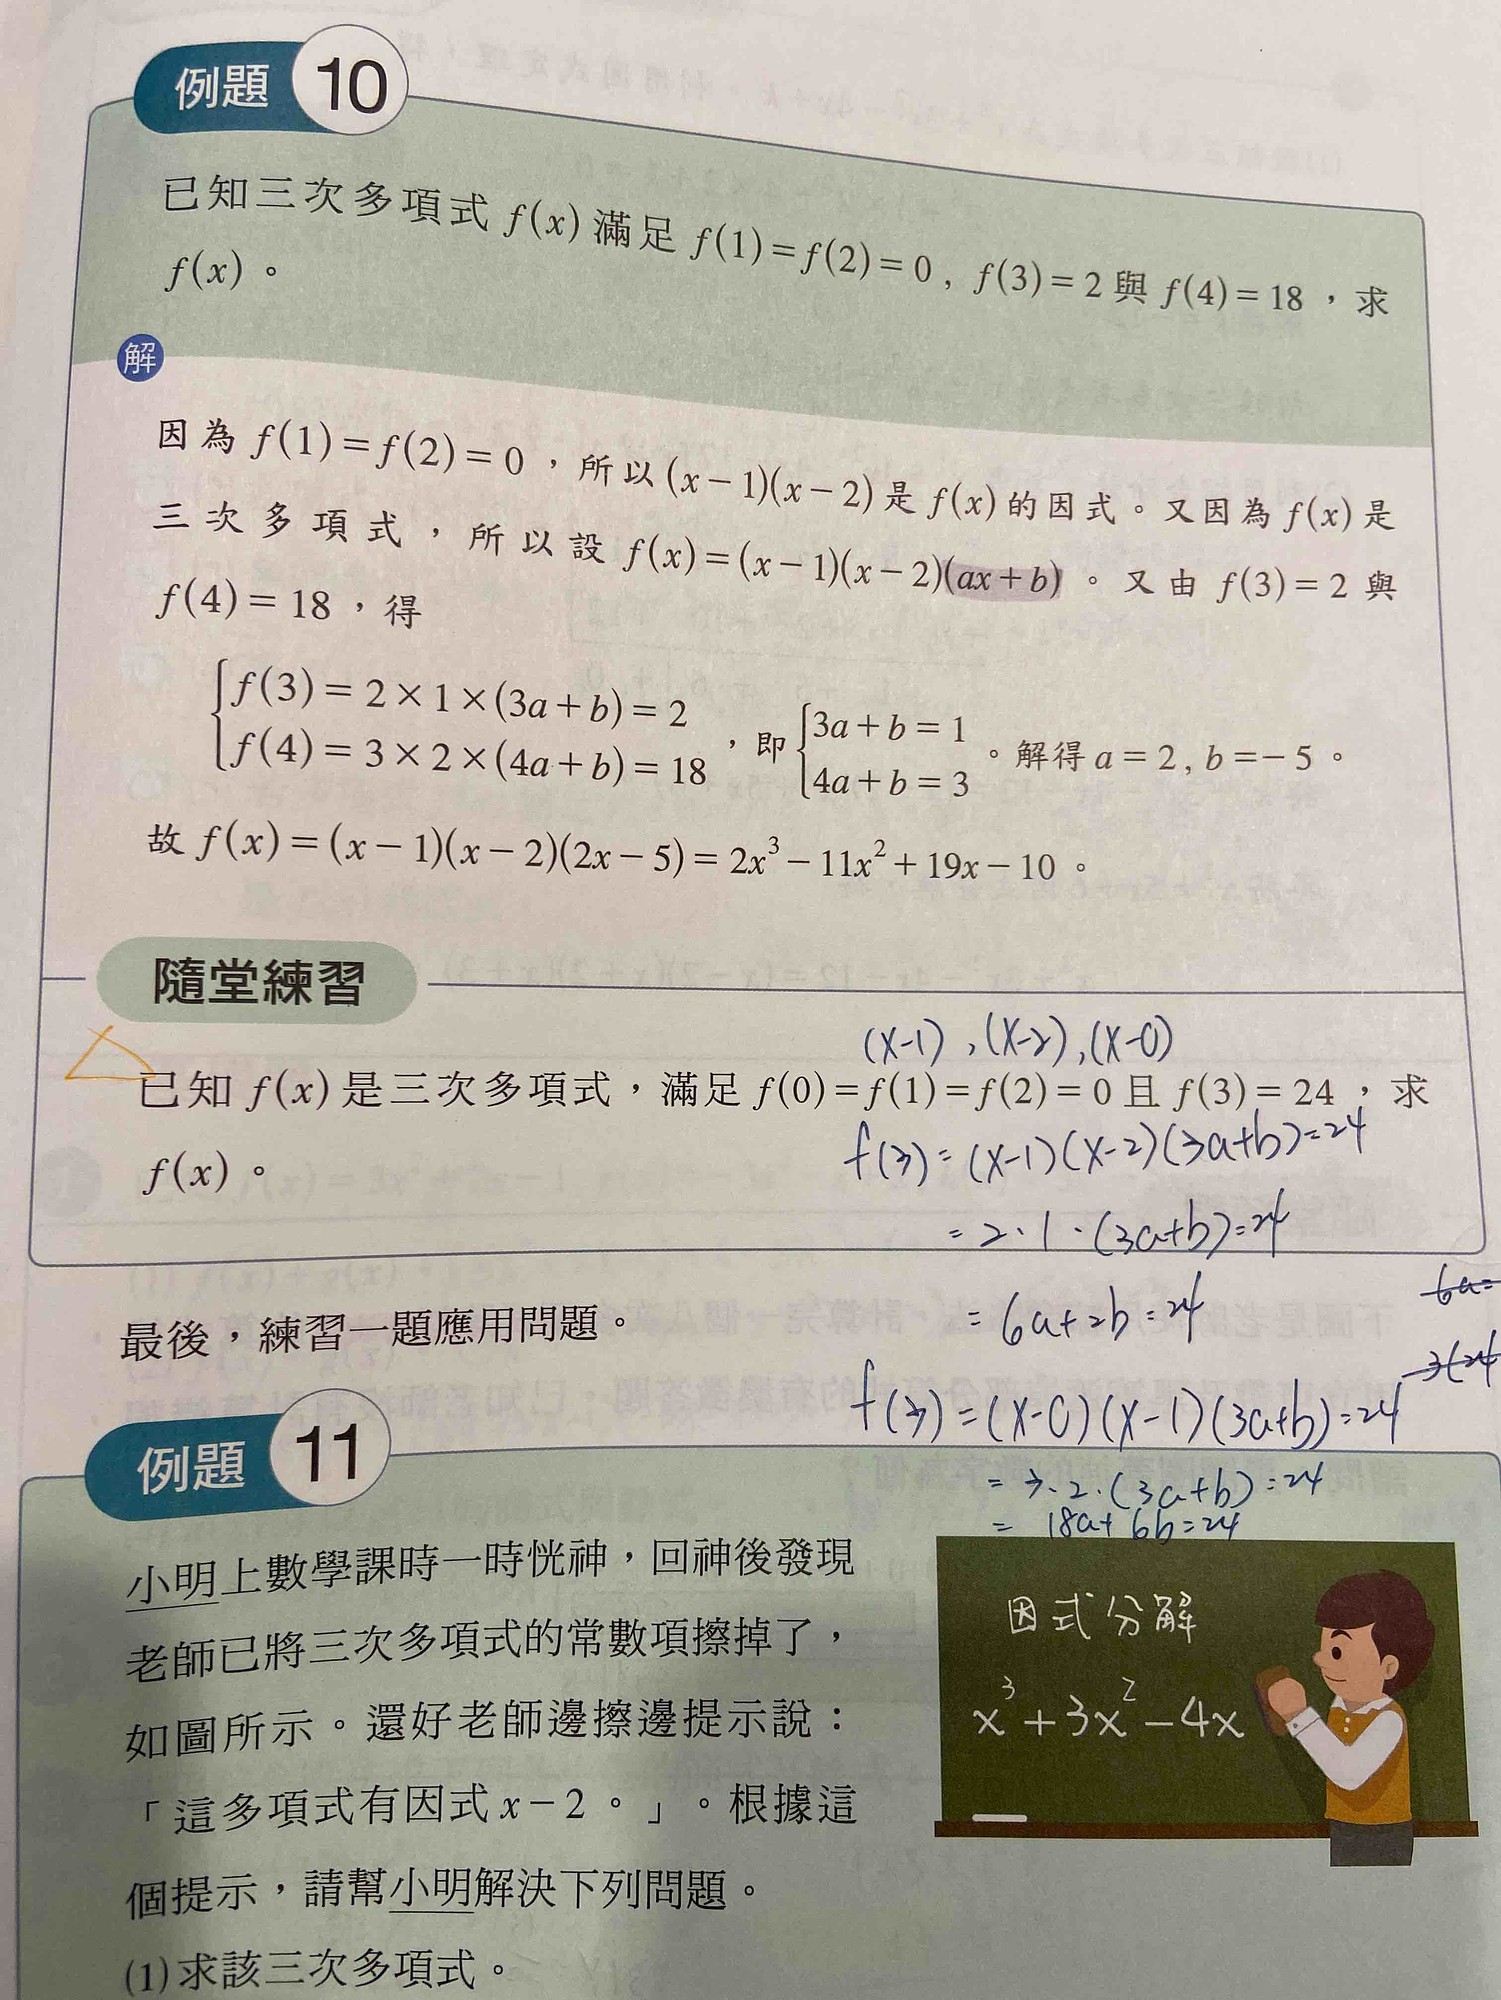 例題 10
已知三次多項式 f(x) 滿足 f(1)=f(2)=0, f(3)=2 與 f(4)=18,求
f(x)。
解
因為 f(1)=f(2)=0,所以 (x-1)(x-2) 是 f(x) 的因式。又因為 f(x) 是
三次多項式,所以設 f(x)=(x-1)(x-2)(ax+b)。又由 f(3)=2 與
f(4)=18,得
f(3)=2×1×(3a+b)=2
f(4)=3×2×(4a+b)=18
,即
3a+b=1
4a+b=3
。解得 a=2, b=-5。
故 f(x)=(x-1)(x-2)(2x-5)=2x³-11x²+19x-10。
隨堂練習
(x-1),(x-2),(x-0)
已知 f(x) 是三次多項式,滿足 f(0)=f(1)=f(2)=0 且 f(3)=24,求
f(x)。
f(3)=(x-1)(x-2)(3a+b)=24
=2·1·(3a+b)=24
=6a+2b=24
6a=
3(24
f(3)=(x-0)(x-1)(3a+b)=24
=3·2·(3a+b)=24
=18a+6b=24
最後,練習一題應用問題。
例題 11
小明上數學課時一時恍神,回神後發現
老師已將三次多項式的常數項擦掉了,
如圖所示。還好老師邊擦邊提示說:
「這多項式有因式 x-2。」。根據這
個提示,請幫小明解決下列問題。
(1)求該三次多項式。
因式分解
x³+3x²-4x